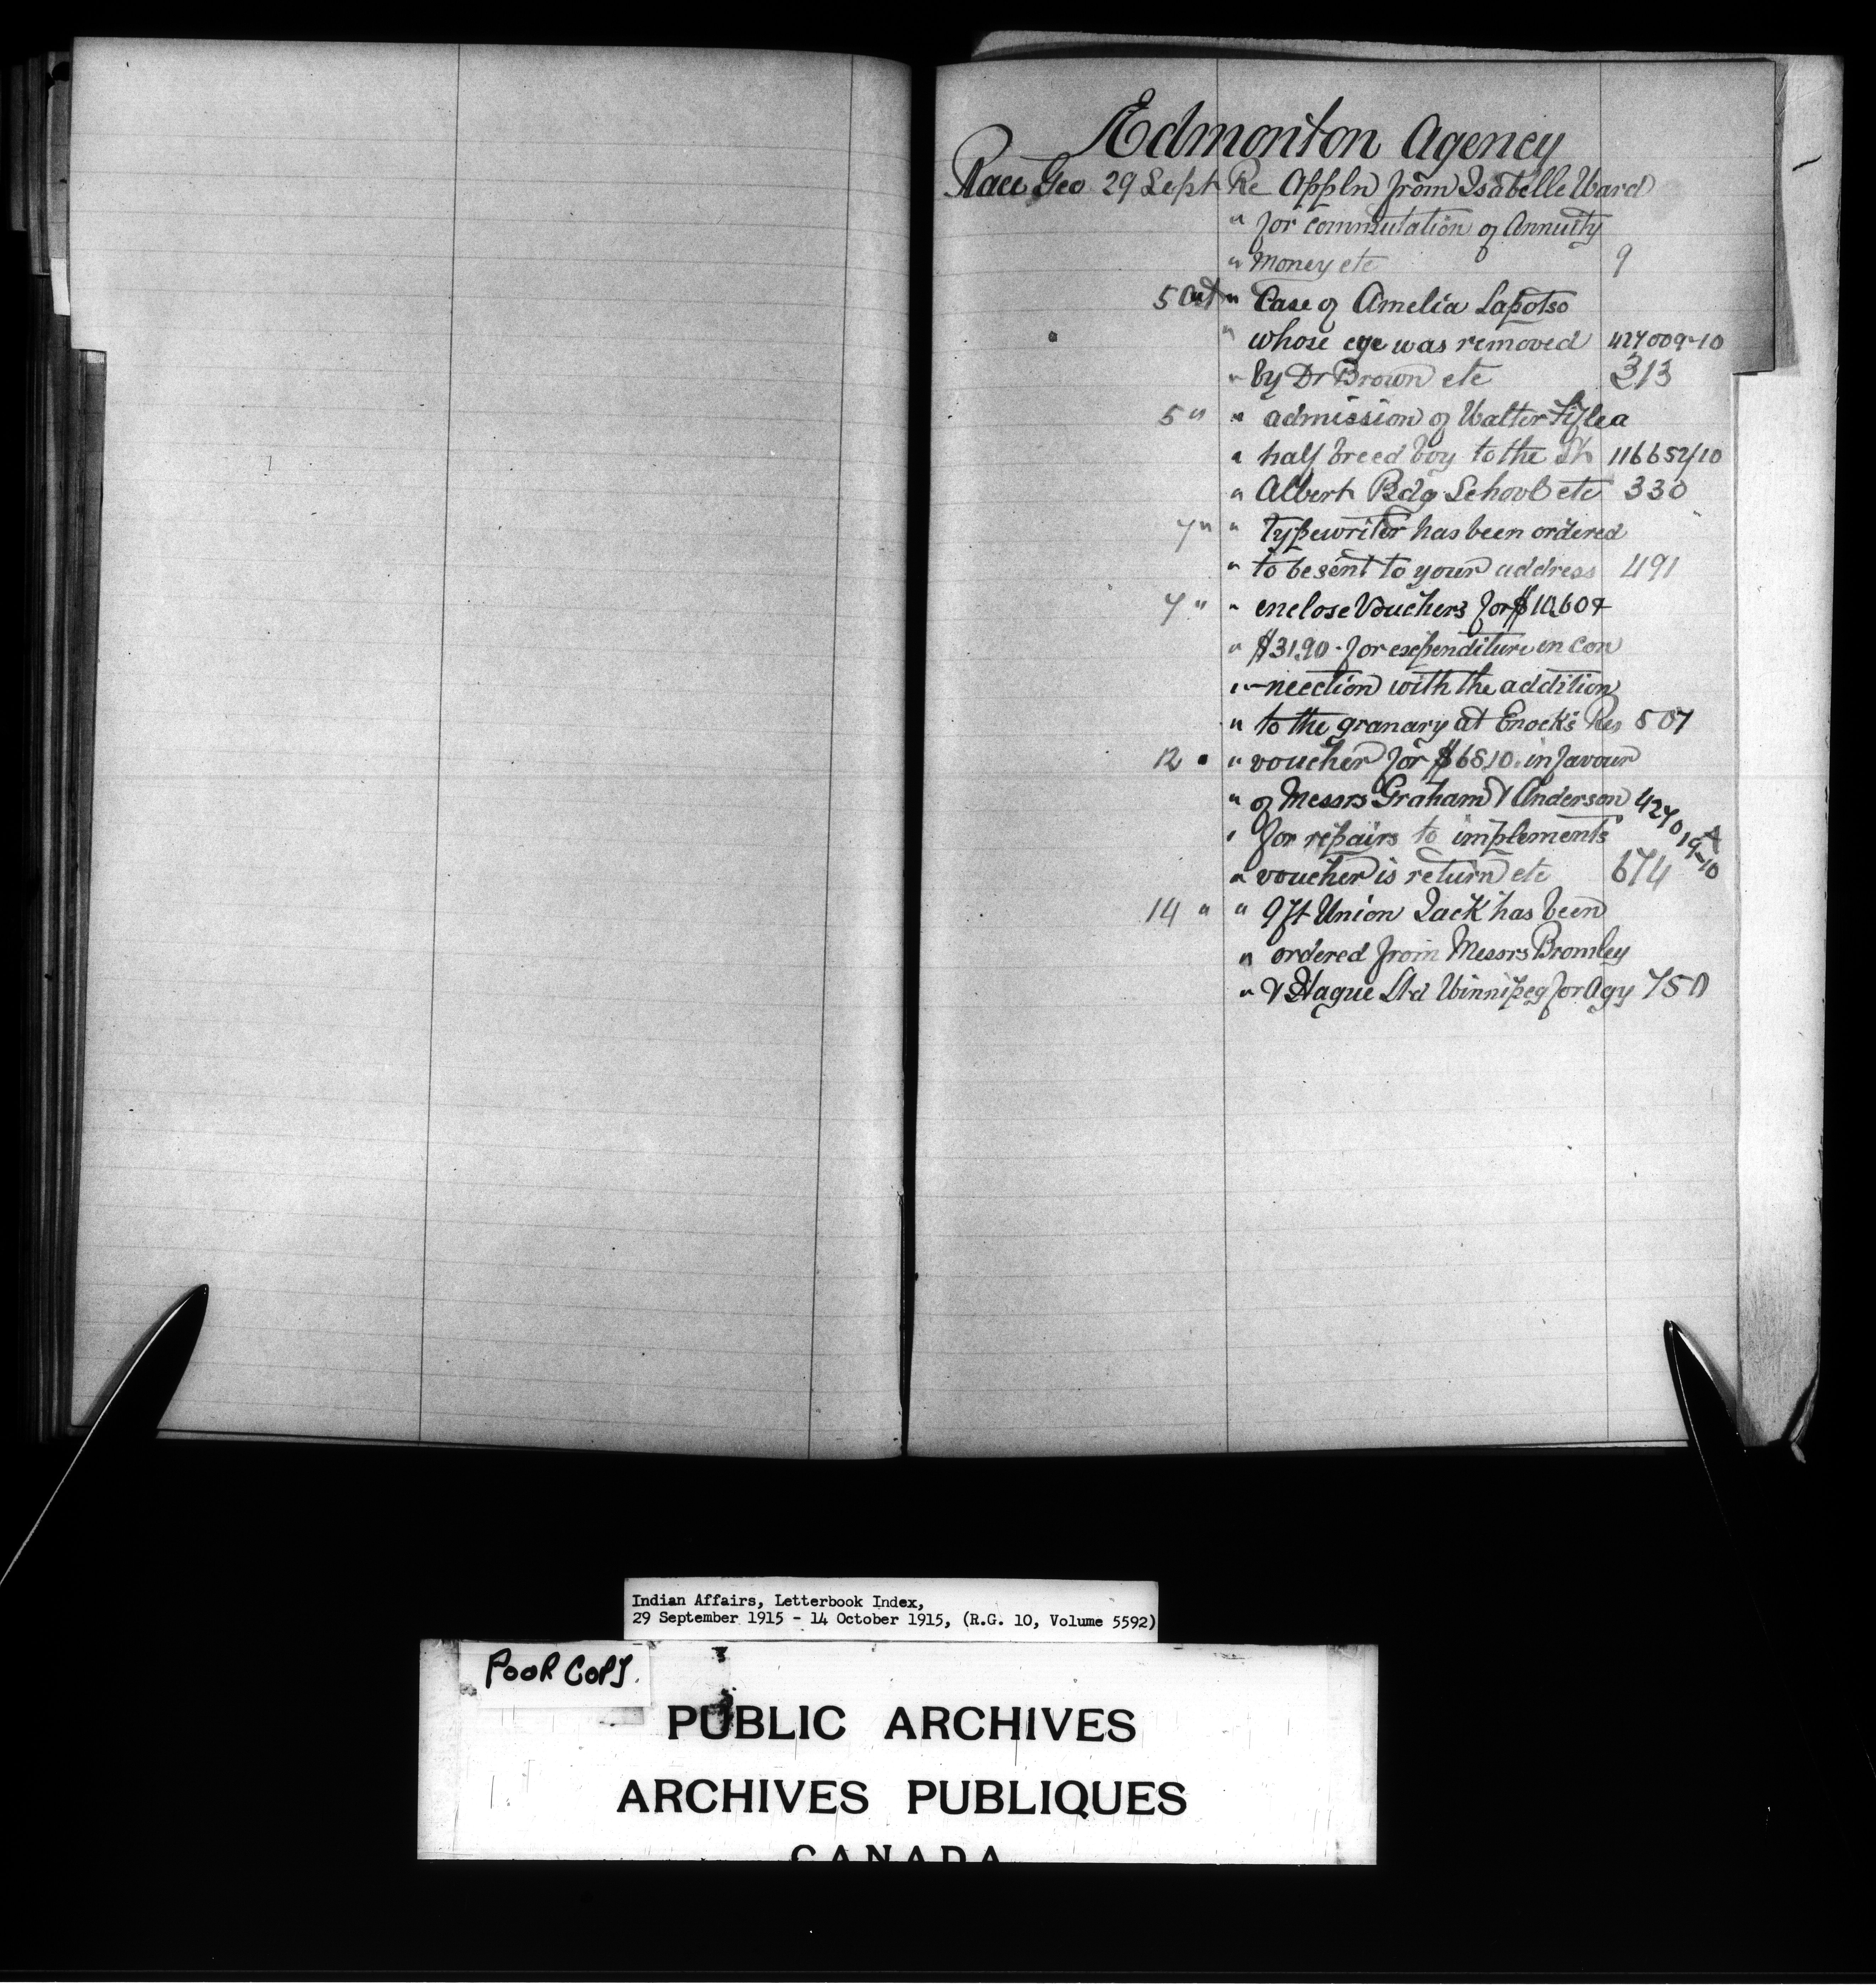 Edmonton Agency
Race Geo 29 Sept Re Appln from Isabelle Ward
" for commutation of Annuity
" Money etc 9
5 Oct " Case of Amelia Lapotso
" whose eye was removed 427009-10
" by Dr Brown etc 313
5 " " admission of Walter a
" half breed boy to the St 116652/10
" Albert Bdg School etc 330
7 " " typewriter has been ordered
" to be sent to your address 491
7 " " enclose Vouchers for $10.60 &
" $31.90 - for expenditure in con
" -nection with the addition
" to the granary at Enock's Res 507
12 " " voucher for $68.10 in favour
" of Messrs Graham & Anderson 427019-10
" for repairs to implements
" voucher is return etc 674
14 " " 9 ft Union Jack has been
" ordered from Messrs Bromley
" & Hague Ltd Winnipeg for Agy 750
Indian Affairs, Letterbook Index,
29 September 1915 - 14 October 1915, (R.G. 10, Volume 5592)
POOR COPY.
PUBLIC ARCHIVES
ARCHIVES PUBLIQUES
CANADA